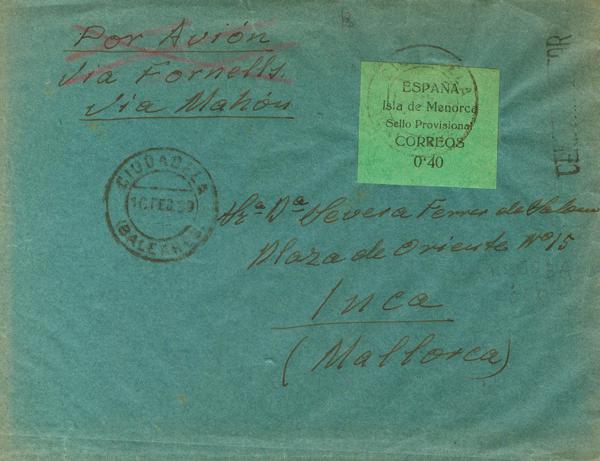 Por Avión
Via Fornells.
Via Mahón
ESPAÑA
Isla de Menorca
Sello Provisional
CORREOS
0'40
CIUDADELA
10 FEB 39
(BALEARES)
Sra Da Severa Ferrer de
Plaza de Oriente Nº 15
Inca
(Mallorca)